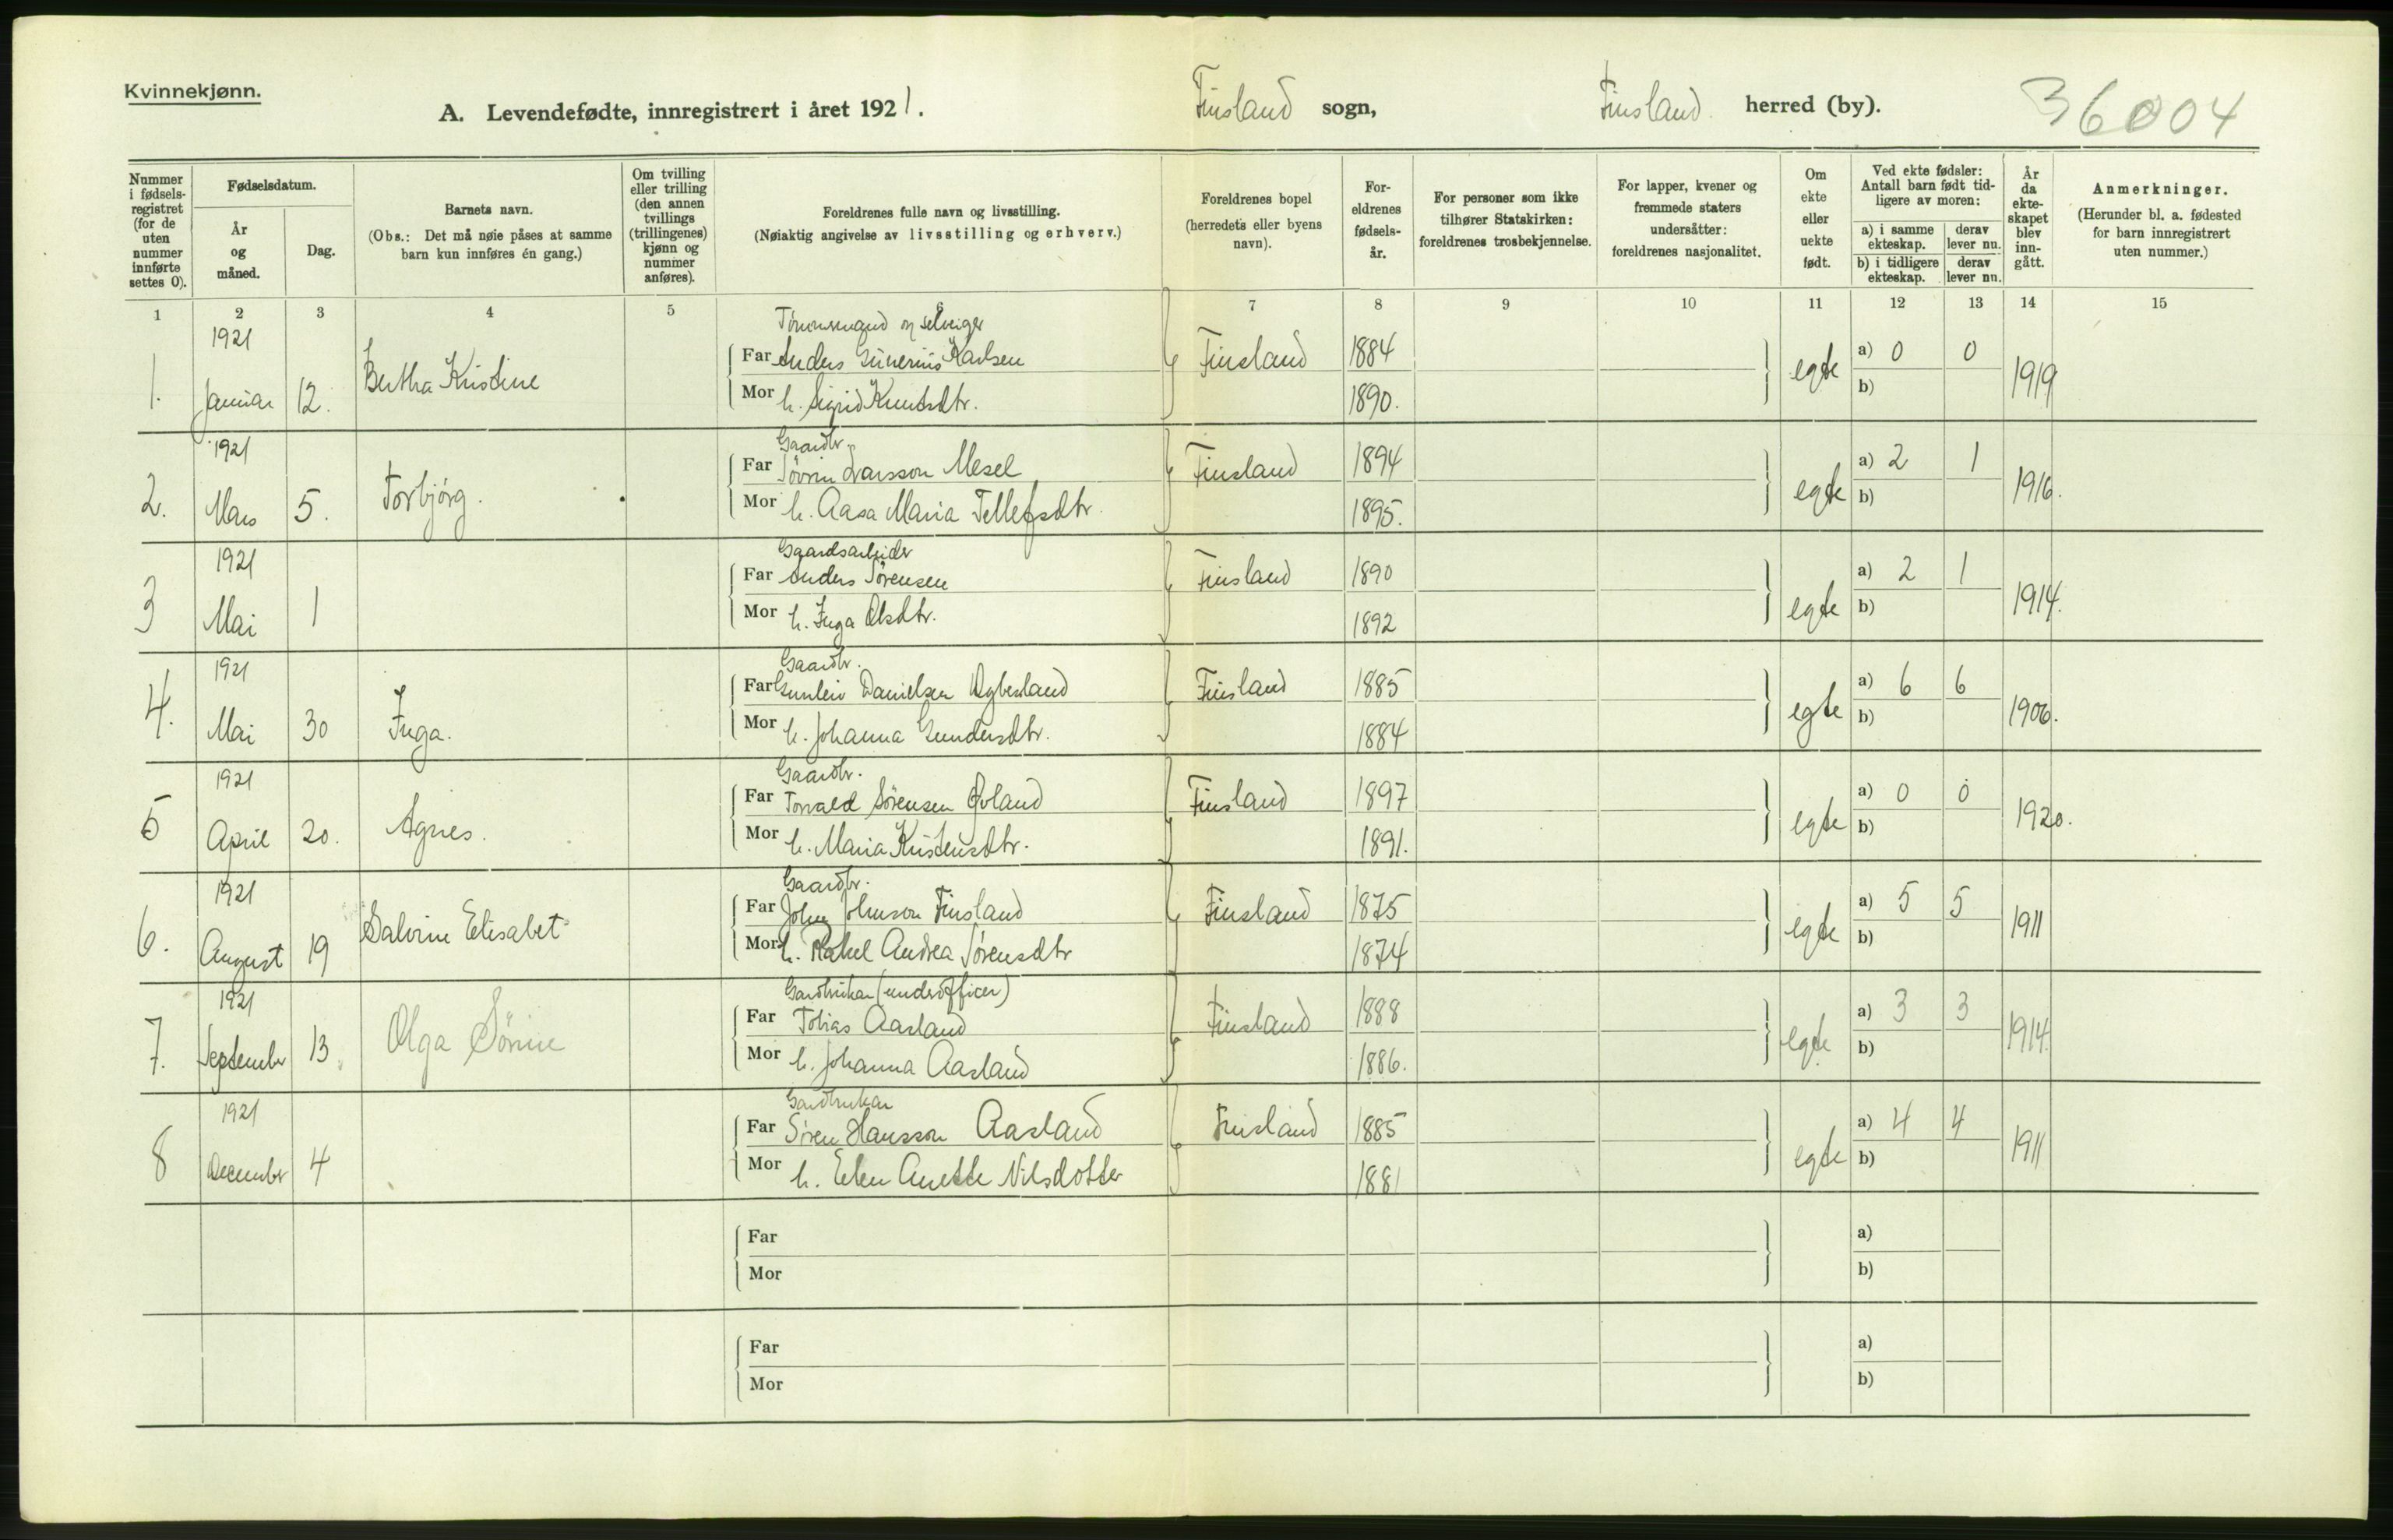 Kvinnekjønn.
A. Levendefødte, innregistrert i året 1921. Finsland sogn, Finsland herred (by). 36004
Nummer i fødsels-registret (for de uten nummer innførte settes 0).
Fødselsdatum.
År og måned.
Dag.
Barnets navn.
(Obs.: Det må nøie påses at samme barn kun innføres én gang.)
Om tvilling eller trilling (den annen tvillings (trillingenes) kjønn og nummer anføres).
Foreldrenes fulle navn og livsstilling.
(Nøiaktig angivelse av livsstilling og erhverv.)
Foreldrenes bopel (herredets eller byens navn).
For-eldrenes fødsels-år.
For personer som ikke tilhører Statskirken: foreldrenes trosbekjennelse.
For lapper, kvener og fremmede staters undersåtter: foreldrenes nasjonalitet.
Om ekte eller uekte født.
Ved ekte fødsler: Antall barn født tid-ligere av moren:
a) i samme ekteskap.
derav lever nu.
b) i tidligere ekteskap.
derav lever nu.
År da ekte-skapet blev inn-gått.
Anmerkninger.
(Herunder bl. a. fødested for barn innregistrert uten nummer.)
1 2 3 4 5 6 7 8 9 10 11 12 13 14 15
1921 Tømmermand og selveiger
Far Anders Gunerius Karlsen Finsland 1884 a) 0 0
1. Januar 12. Bertha Kristine egte 1919
Mor h. Sigrid Knutsdtr. 1890. b)
1921 Gaardbr.
Far Søvrin Larsson Mesel Finsland 1894 a) 2 1
2. Mars 5. Torbjørg. egte 1916.
Mor h. Aasa Maria Tellefsdtr. 1895. b)
1921 Gaardsarbeider
Far Anders Sørensen Finsland 1890 a) 2 1
3 Mai 1 egte 1914.
Mor h. Inga Olsdtr. 1892 b)
1921 Gaardbr.
Far Gunleiv Danielsen Øgbesland Finsland 1885 a) 6 6
4. Mai 30 Inga. egte 1906.
Mor h. Johanna Gundersdtr. 1884 b)
1921 Gaardbr.
Far Torvald Sørensen Finsland 1897 a) 0 0
5 April 20. Agnes. egte 1920.
Mor h. Maria Kristensdtr. 1891. b)
1921 Gaardbr.
Far John Johnson Finsland Finsland 1875 a) 5 5
6. August 19 Salvine Elisabet egte 1911
Mor h. Rakel Andrea Sørensdtr 1874 b)
1921 Gardbrukar (underofficer)
Far Tobias Aasland Finsland 1888 a) 3 3
7. September 13. Olga Sørine egte 1914.
Mor h. Johanna Aasland 1886. b)
1921 Gardbrukar
Far Søren Hansson Aasland Finsland 1885 a) 4 4
8 December 4 egte 1911
Mor h. Elen Anette Nilsdotter 1881 b)
Far a)
Mor b)
Far a)
Mor b)